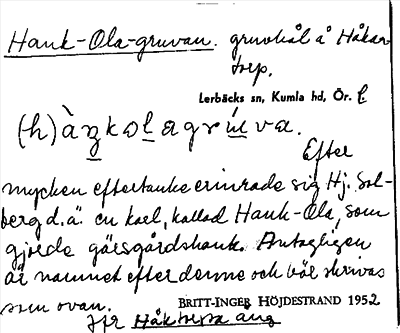 Hank-Ola-gruvan. gruvhål å Håkan-
torp.
Lerbäcks sn, Kumla hd, Ör. l
(h)àŋkolagrúva.
Efter
mycken eftertanke erinrade sig Hj. Sol-
berg d.ä. en karl, kallad Hank-Ola, som
gjorde gärsgårdshank. Antagligen
är namnet efter denne och bör skrivas
som ovan.
BRITT-INGER HÖJDESTRAND 1952
Jfr äng